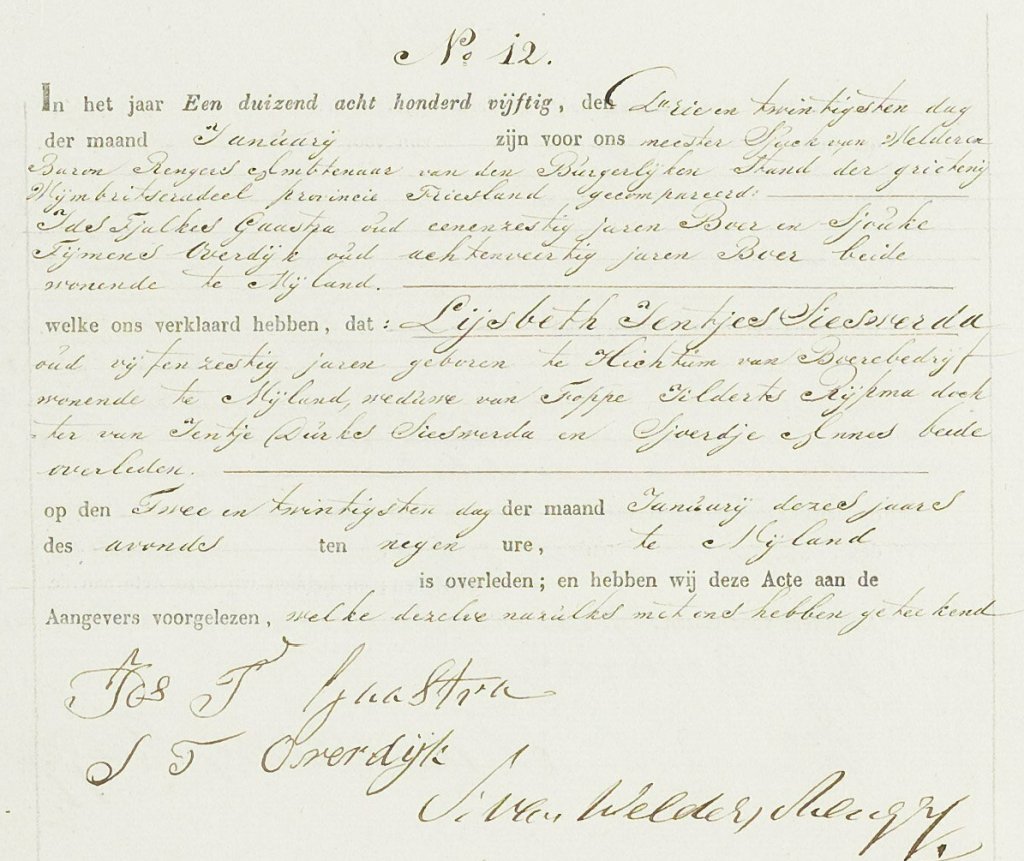 No. 12.
In het jaar Een duizend acht honderd vijftig, den Drie en twintigsten dag
der maand Januarij zijn voor ons meester Sjuck van Welderen
Baron Rengers Ambtenaar van den Burgerlyken Stand der grietenij
Wymbritseradeel provincie Friesland gecompareerd:
Ids Tjalkes Gaastra oud eenenzestig jaren Boer en Sjouke
Tijmens Overdijk oud achtenveertig jaren Boer beide
wonende te Nijland.
welke ons verklaard hebben, dat: Lijsbeth Jentjes Sieswerda
oud vijfenzestig jaren geboren te Hichtum van Boerebedrijf
wonende te Nijland, weduwe van Foppe Rijpma doch
ter van Jentje Durks Sieswerda en Sjoerdje Annes beide
overleden.
op den Twee en twintigsten dag der maand Januarij dezes jaars
des avonds ten negen ure, te Nijland
is overleden; en hebben wij deze Acte aan de
Aangevers voorgelezen, welke dezelve nazulks met ons hebben geteekend
Ids T Gaastra
S T Overdijk
S van Welderen Rengers